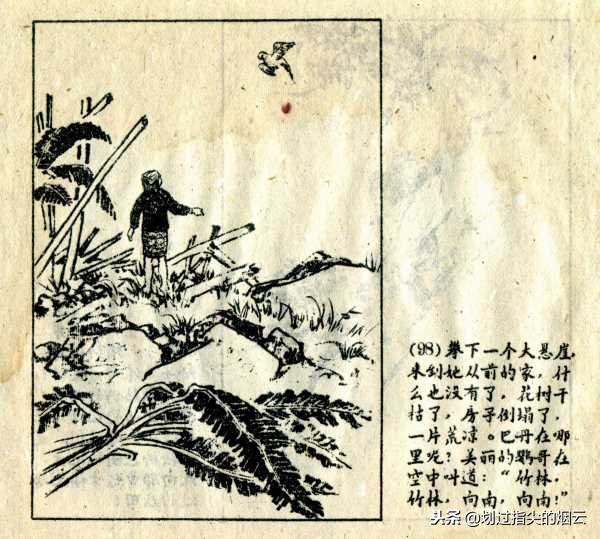 (98) 攀下一个大悬崖,
来到她从前的家,什
么也没有了,花树干
枯了,房子倒塌了,
一片荒凉。巴丹在哪
里呢?美丽的鹦哥在
空中叫道:“竹林,
竹林,向南,向南!”
头条 @划过指头的烟云